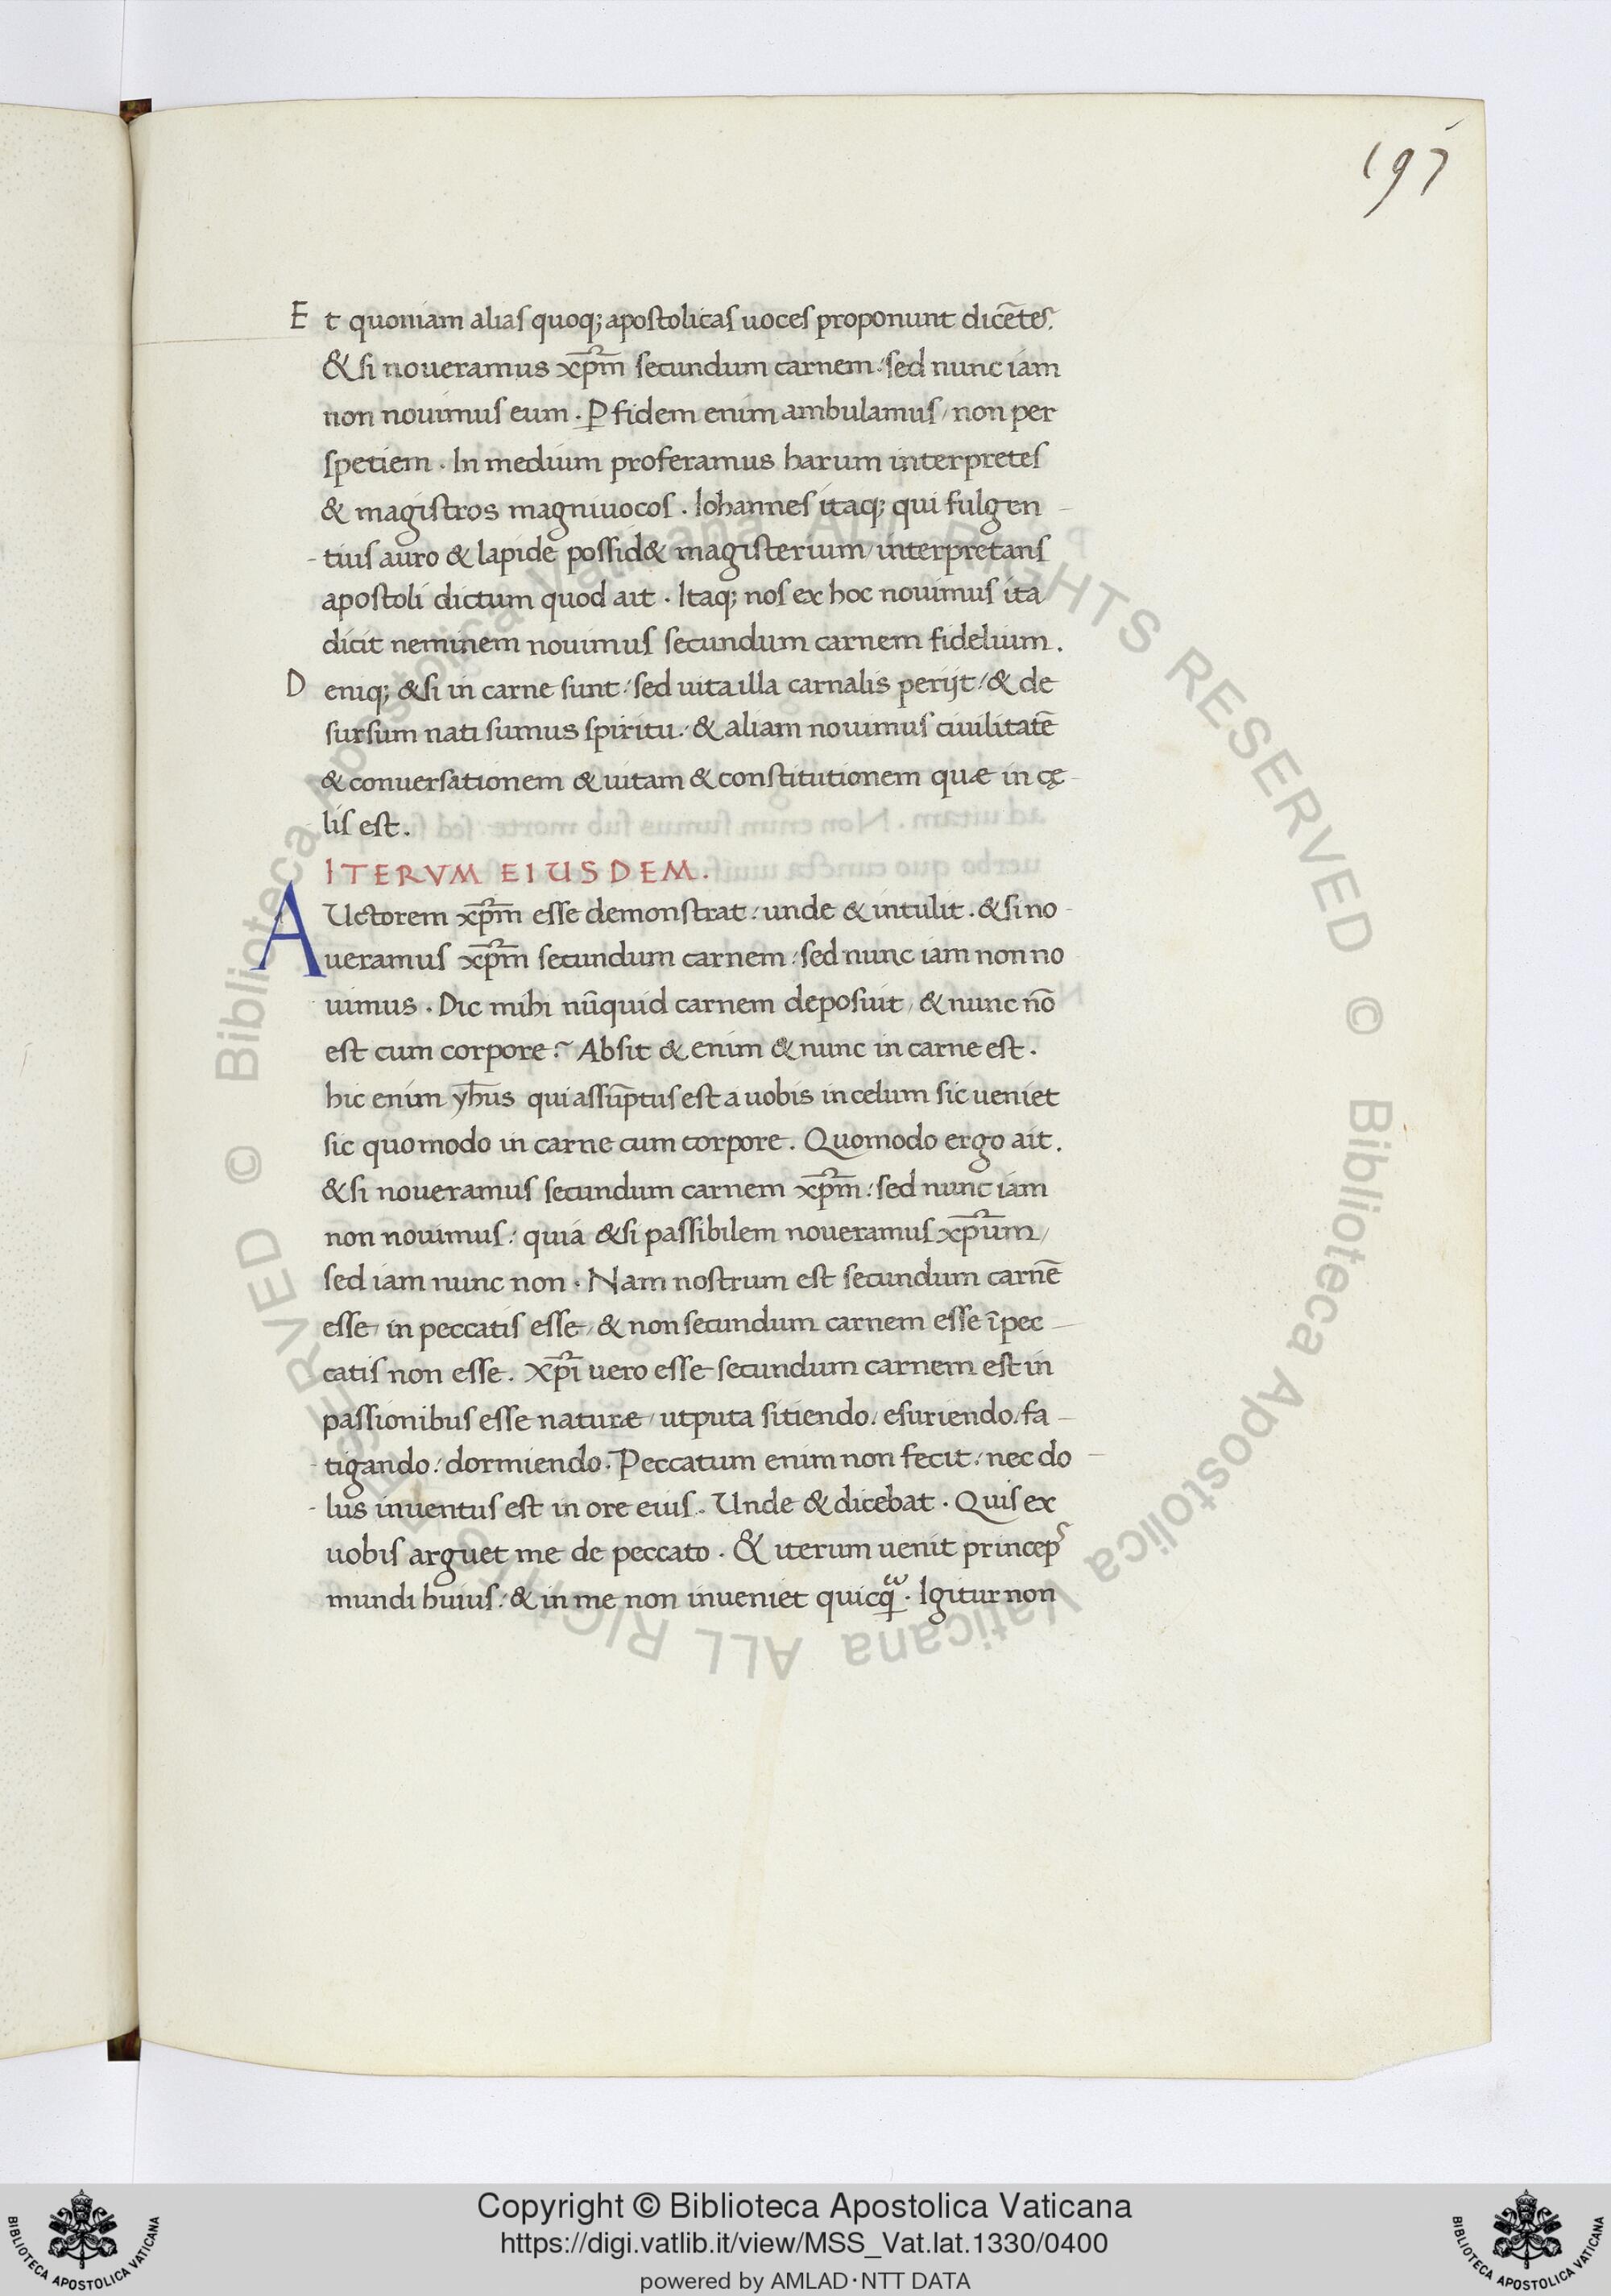 197
Et quoniam alias quoq; apostolicas uoces proponunt dicẽtes.
& si noueramus xp̅m secundum carnem: sed nunc iam
non nouimus eum. ꝑ fidem enim ambulamus, non per
spetiem. In medium proferamus harum interpretes
& magistros magniuocos. Iohannes itaq; qui fulgen
tius auro & lapide possid& magisterium, interpretans
apostoli dictum quod ait. Itaq; nos ex hoc nouimus ita
dicit neminem nouimus secundum carnem fidelium.
Deniq; & si in carne sunt: sed uita illa carnalis perijt: & de
sursum nati sumus spiritu: & aliam nouimus ciuilitatẽ
& conuersationem & uitam & constitutionem quæ in cę
lis est.
ITERVM EIUSDEM.
AUctorem xp̅m esse demonstrat: unde & intulit. & si no
ueramus xp̅m secundum carnem: sed nunc iam non no
uimus. Dic mihi nũquid carnem deposuit, & nunc nõ
est cum corpore? Absit & enim & nunc in carne est.
hic enim yh̅us qui assũptus est a uobis in celum sic ueniet
sic quomodo in carne cum corpore. Quomodo ergo ait.
& si noueramus secundum carnem xp̅m: sed nunc iam
non nouimus: quia & si passibilem noueramus xp̅um,
sed iam nunc non. Nam nostrum est secundum carnẽ
esse, in peccatis esse, & non secundum carnem esse ĩ pec
catis non esse. Xp̅i uero esse secundum carnem est in
passionibus esse naturæ, utputa sitiendo. esuriendo. fa
tigando: dormiendo. Peccatum enim non fecit: nec do
lus inuentus est in ore eius. Unde & dicebat. Quis ex
uobis arguet me de peccato. & iterum uenit princeps
mundi huius: & in me non inueniet quicq̃. Igitur non
© Biblioteca Apostolica Vaticana ALL RIGHTS RESERVED © Biblioteca Apostolica Vaticana ALL RIGHTS RESERVED
Copyright © Biblioteca Apostolica Vaticana
https://digi.vatlib.it/view/MSS_Vat.lat.1330/0400
powered by AMLAD·NTT DATA
BIBLIOTECA APOSTOLICA VATICANA
BIBLIOTECA APOSTOLICA VATICANA